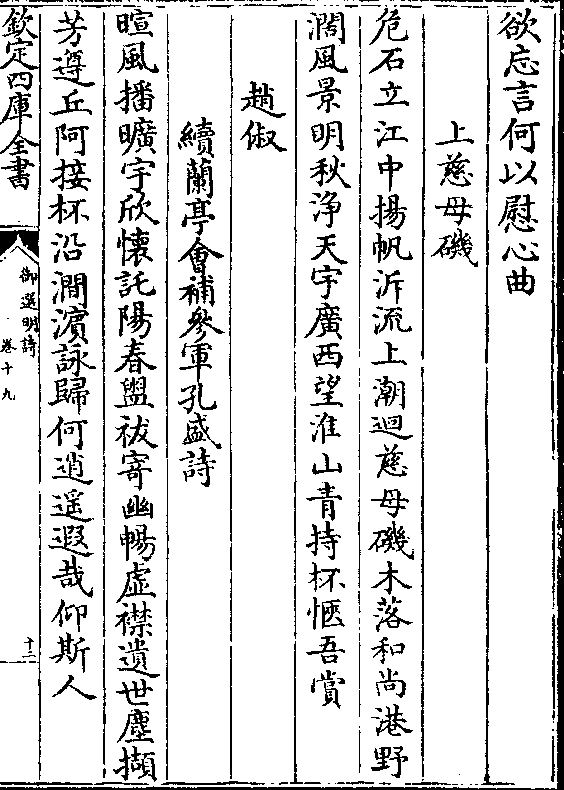 欲忘言何以慰心曲
上慈母磯
危石立江中揚帆泝流上潮迴慈母磯木落和尚港野
濶風景明秋浄天宇廣西望淮山青持杯愜吾賞
趙俶
續蘭亭會補參軍孔盛詩
暄風播曠宇欣懷託陽春盥祓寄幽暢虚襟遺世塵擷
芳遵丘阿接杯沿澗濵詠歸何逍遥遐哉仰斯人
欽定四庫全書
御選明詩
卷十九
十三